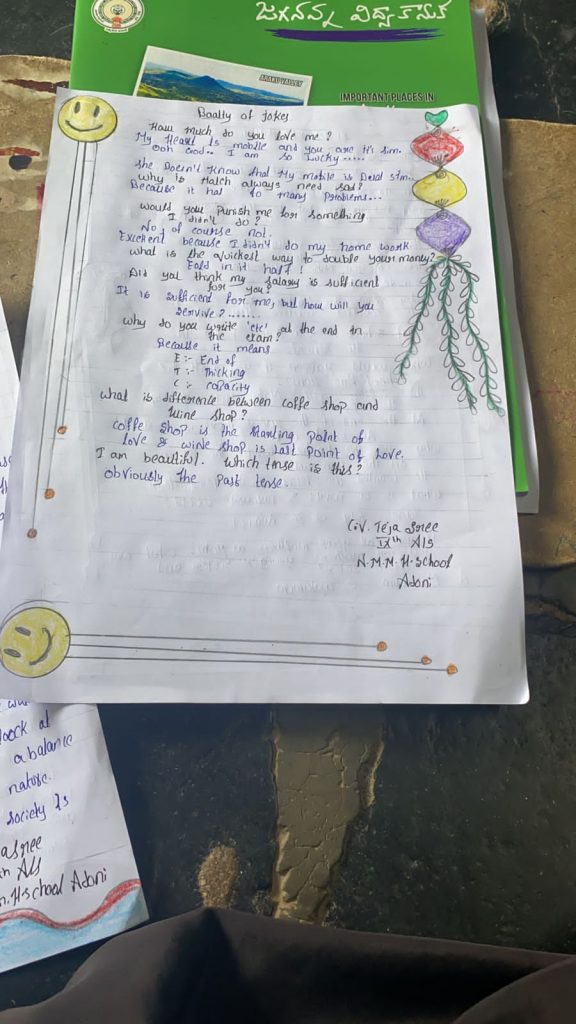 జగనన్న విద్యా కానుక
ARAKU VALLEY
IMPORTANT PLACES IN
Baalty of Jokes
How much do you love me?
My Heart Is mobile and you are it's sim.
Ooh God.. I am so Lucky.....
she Doesn't know that My mobile is Dual sim..
why is Match always need sad?
Because it has to many problems...
would you Punish me for something
I didn't do?
No, of course not.
Excellent because I didn't do my home work
what is the quickest way to double your money?
Fold in it half!
Did yal think my salary is sufficient
for you?
It is sufficient for me, but how will you
servive?.......
why do you write 'etc' at the end in
the exam?
Because it means
E:- End of
T:- Thicking
C:- capacity
what is difference between coffe shop and
wine shop?
coffe shop is the starting point of
love & wine shop is last point of love.
I am beautiful. which tense is this?
obviously the past tense.
G.V. Teja sree
IXth A/s
N.M.N.H-school
Adoni
look at
a balance
nature.
society Is
asree
th A/s
n.H-school Adoni